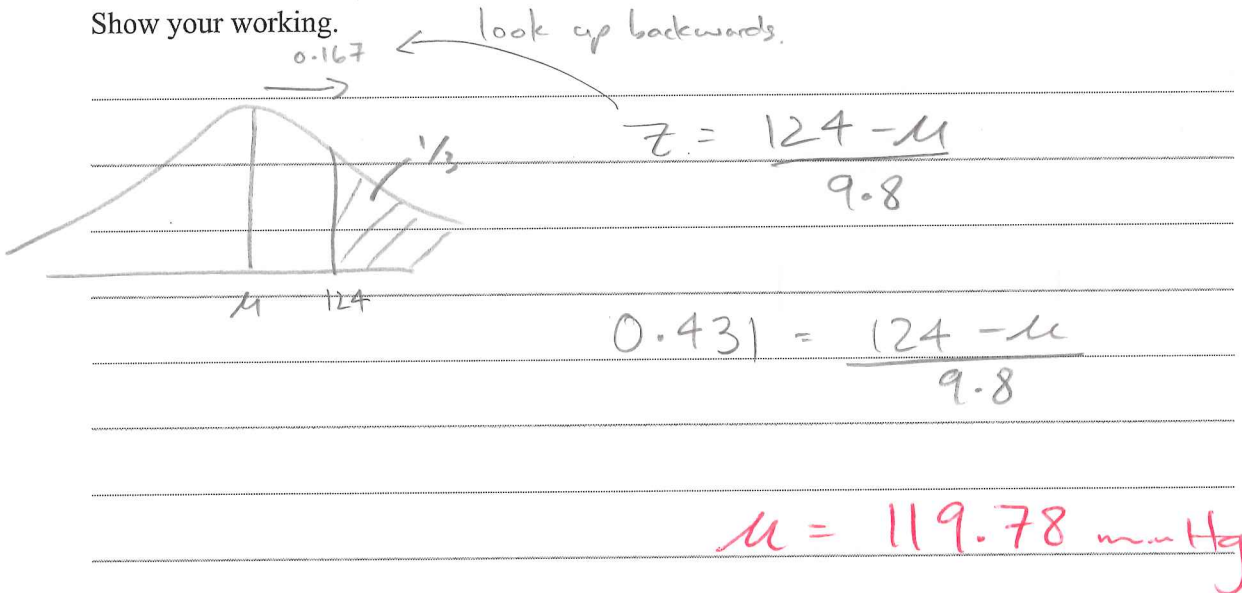 Show your working.
look up backwards.
0.167
1/3
z = 124 - μ / 9.8
μ 124
0.431 = 124 - μ / 9.8
μ = 119.78 mmHg